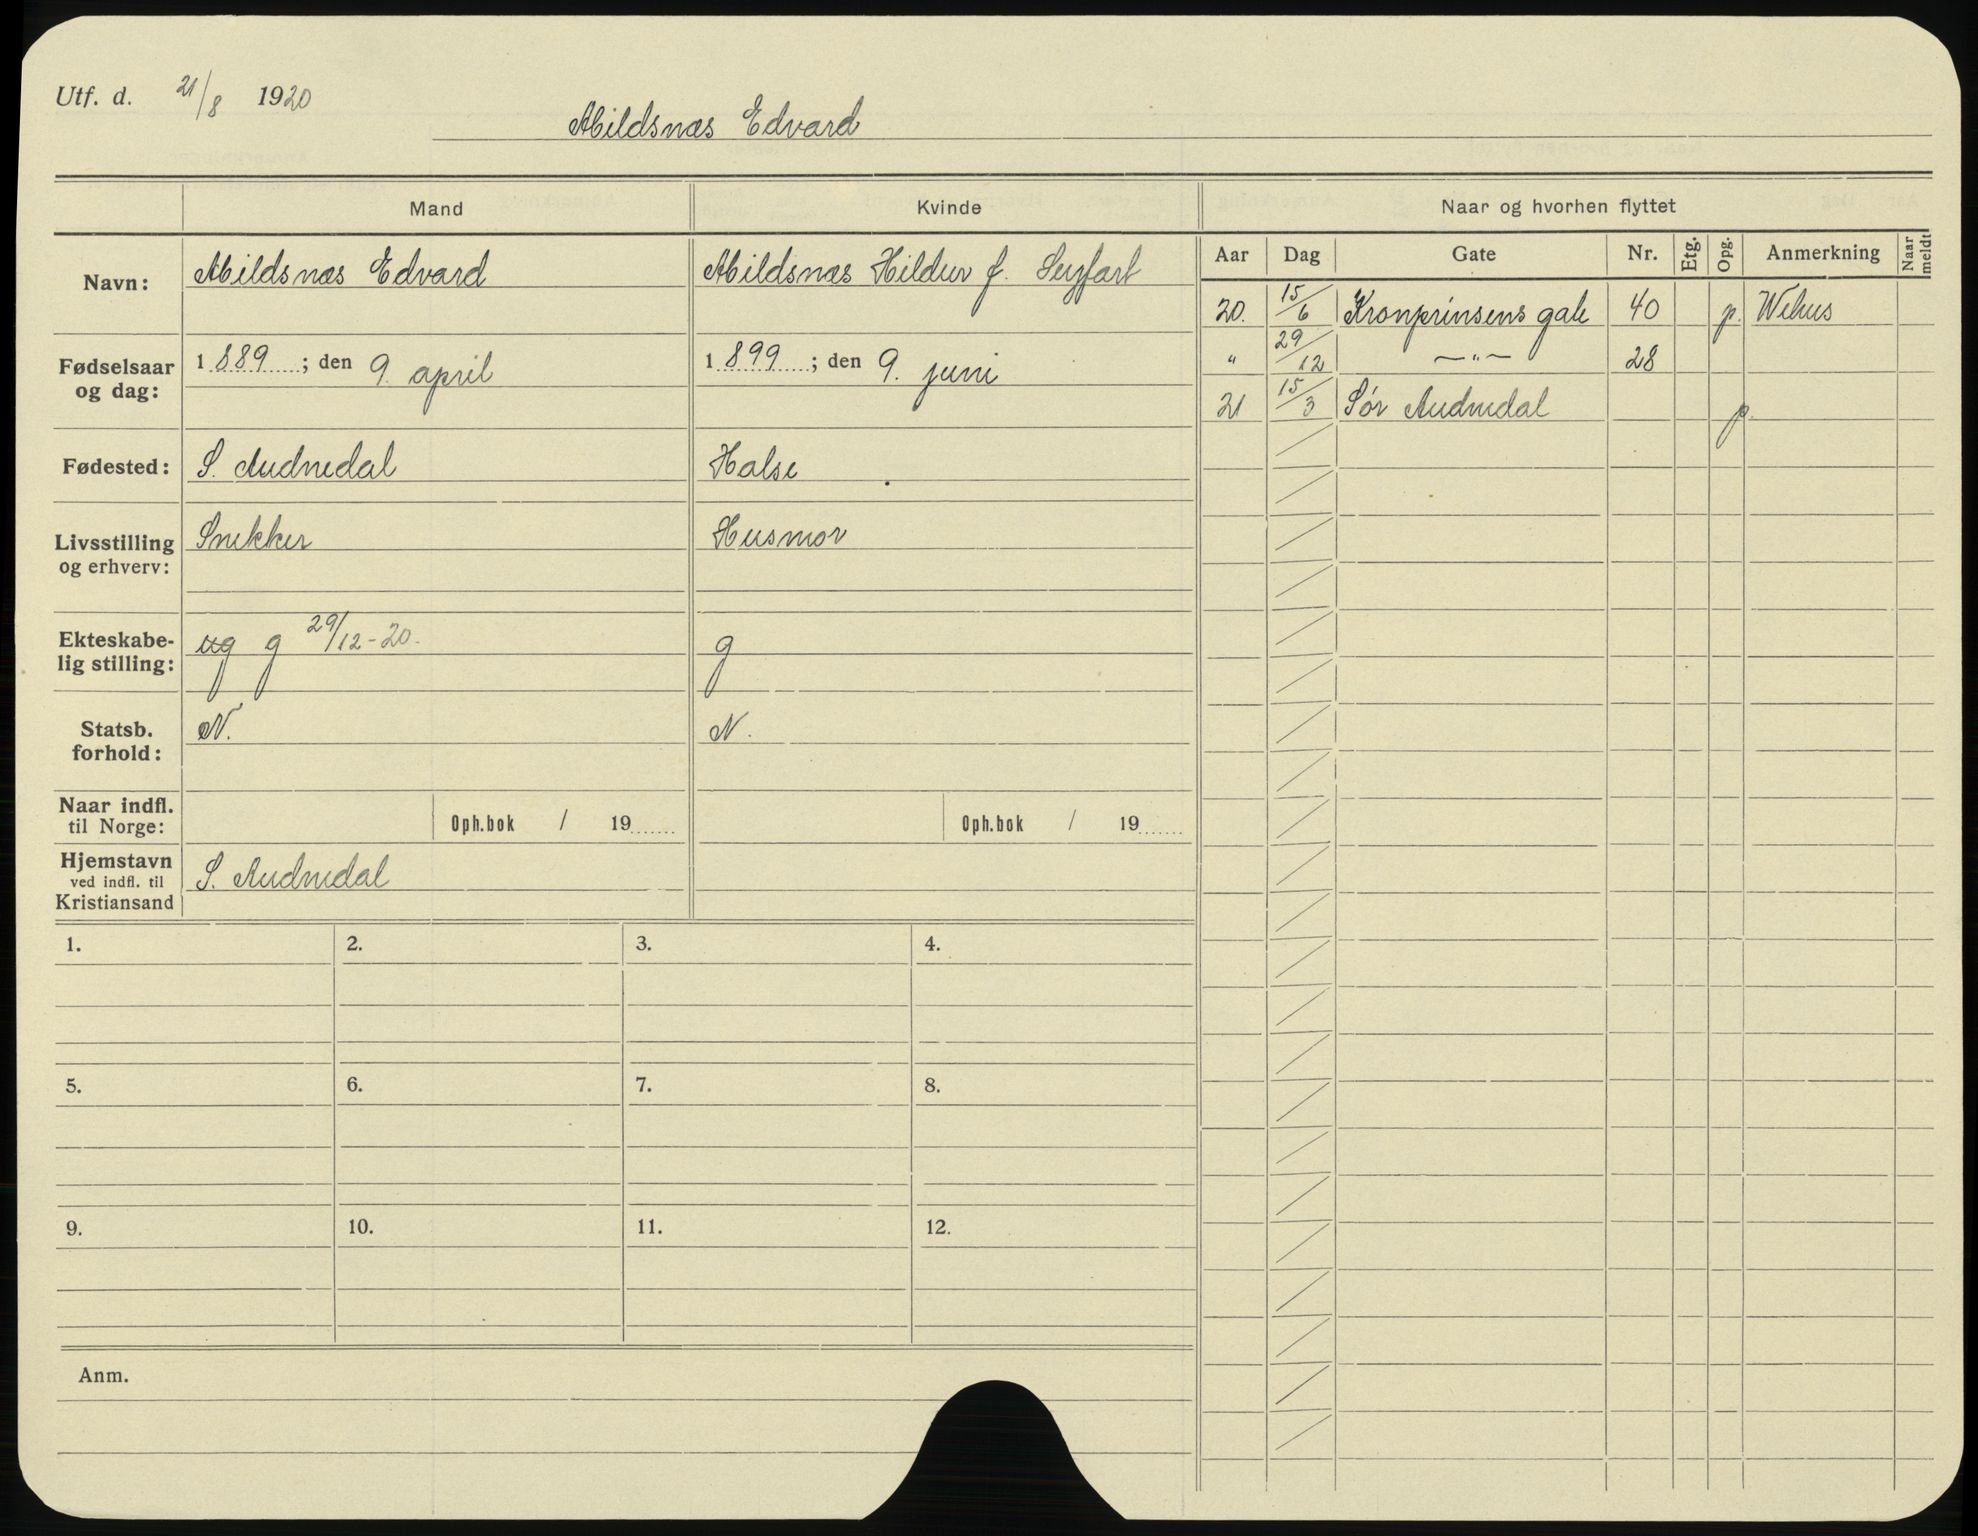 Utf. d. 21/8 1920
Abildsnæs Edvard
Mand Kvinde Naar og hvorhen flyttet
Aar Dag Gate Nr. Etg. Opg. Anmerkning Naar meldt
Navn: Abildsnæs Edvard Abildsnæs Hildur f. Seyfart
20. 15/6 Kronprinsens gate 40 p. Wehus
Fødselsaar og dag: 1889; den 9. april 1899; den 9. juni
" 29/12 —"— 28
21 15/3 Sør Audnedal p.
Fødested: S. Audnedal Halse
Livsstilling og erhverv: Snekker Husmor
Ekteskabe-
lig stilling: ug g 29/12-20. g
Statsb.
forhold: N. N.
Naar indfl.
til Norge: Oph.bok / 19 Oph.bok / 19
Hjemstavn
ved indfl. til
Kristiansand S. Audnedal
1. 2. 3. 4.
5. 6. 7. 8.
9. 10. 11. 12.
Anm.